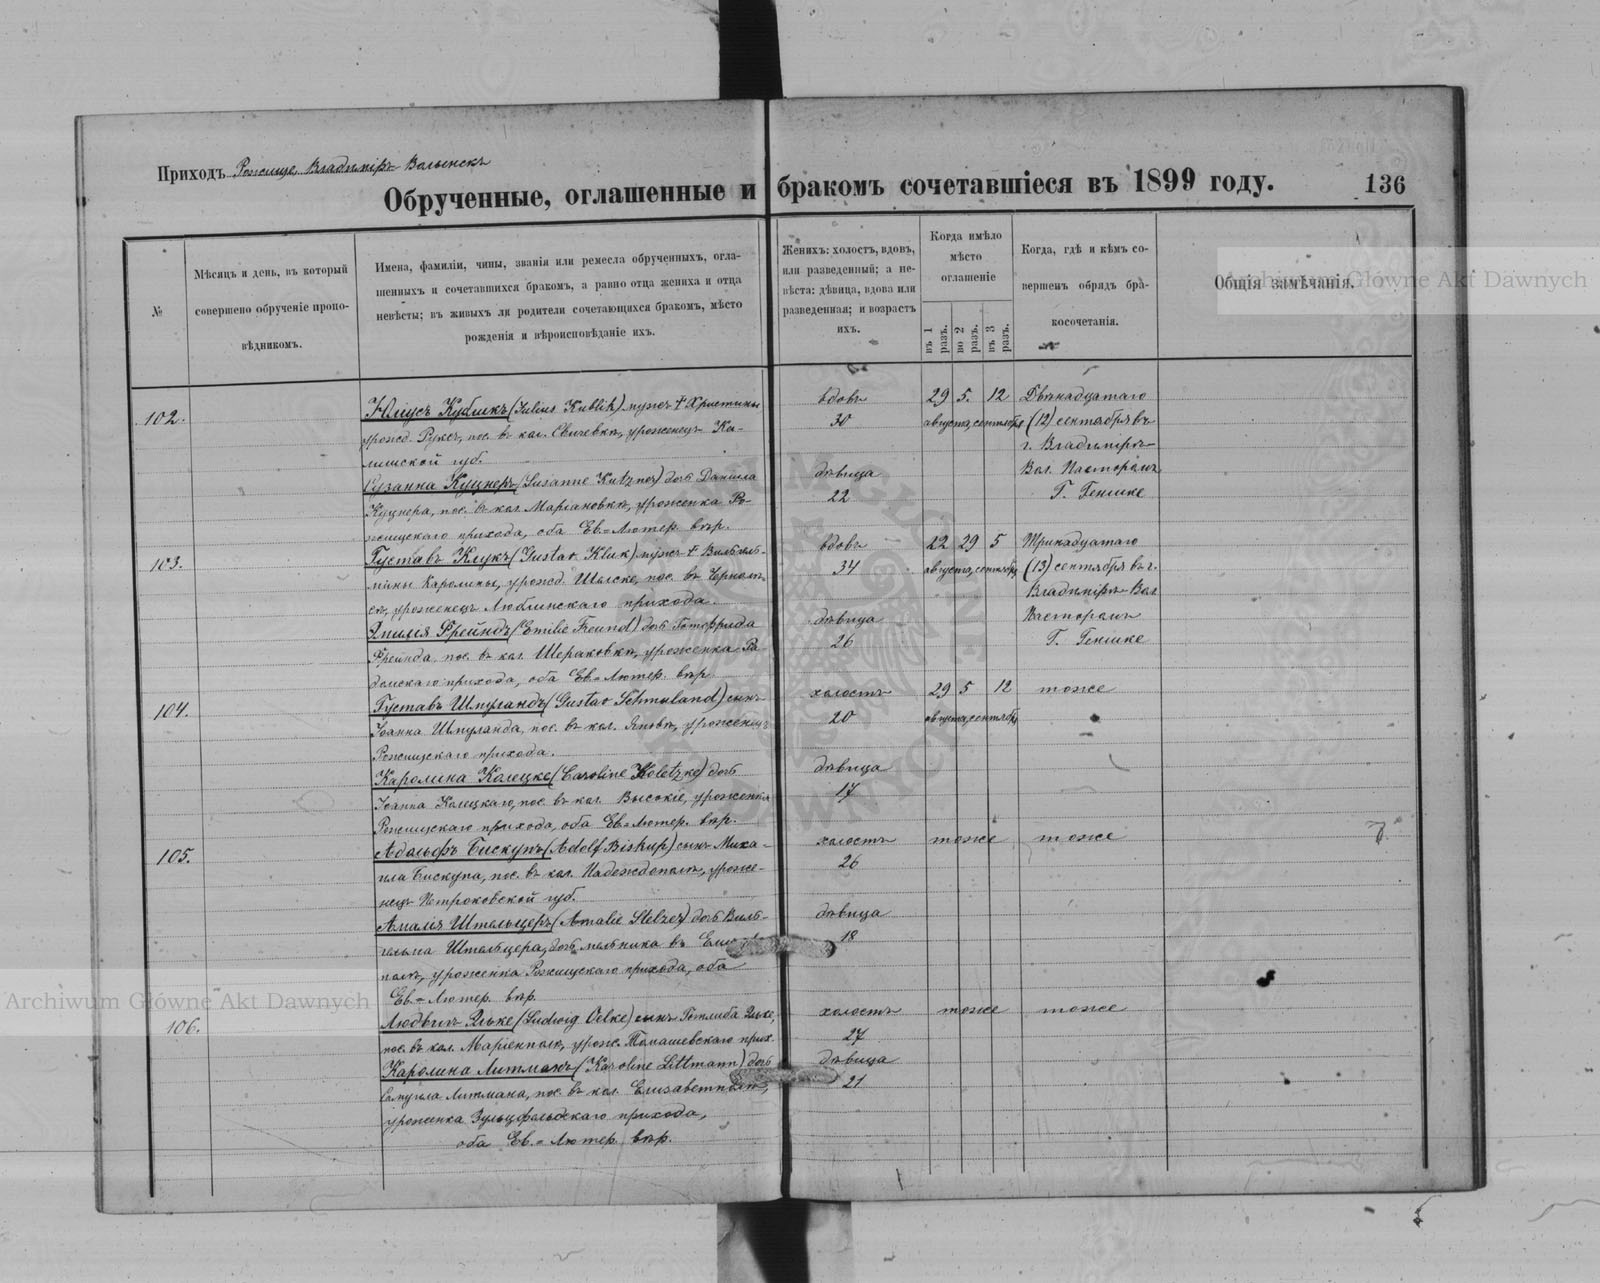 Приходъ Рожище Владиміръ Волынскъ
Обрученные, оглашенные и бракомъ сочетавшіеся въ 1899 году.
136
№
Мѣсяцъ и день, въ который
совершено обрученіе пропо-
вѣдникомъ.
Имена, фамиліи, чины, званія или ремесла обрученныхъ, огла-
шенныхъ и сочетавшихся бракомъ, а равно отца жениха и отца
невѣсты; въ живыхъ ли родители сочетающихся бракомъ, мѣсто
рожденія и вѣроисповѣданіе ихъ.
Женихъ: холостъ, вдовъ,
или разведенный; а не-
вѣста: дѣвица, вдова или
разведенная; и возрастъ
ихъ.
Когда имѣло
мѣсто
оглашеніе
въ 1 разъ.
во 2 разъ.
въ 3 разъ.
Когда, гдѣ и кѣмъ со-
вершенъ обрядъ бра-
косочетанія.
Общія замѣчанія.
Archiwum Główne Akt Dawnych
102.
Юліусъ Кубликъ (Julius Kublik) мужъ † Христины
урожд. Руксъ, пос. въ кол. Свичевкѣ, уроженецъ Ка-
лишской губ.
Сузанна Куцнеръ (Susanne Kutzner) дочь Даніила
Куцнера, пос. въ кол. Маріановкѣ, уроженка Ро-
жищскаго прихода, оба Ев.-Лютер. вѣр.
вдовъ
30
дѣвица
22
29 5. 12
августа, сентября
Двѣнадцатаго
(12) сентября въ
г. Владиміръ-
Вол. Пасторомъ
Г. Генике
103.
Густавъ Клукъ (Gustav Kluk) мужъ † Вильгель-
мины Каролины, урожд. Шыске, пос. въ
уроженецъ Люблинскаго прихода.
Эмилія Фрейндъ (Emilie Freund) дочь Готфрида
Фрейнда, пос. въ кол. Шераковкѣ, уроженка Ра-
домскаго прихода, оба Ев.-Лютер. вѣр.
вдовъ
34
дѣвица
26
22 29 5
августа, сентября
Тринадцатаго
(13) сентября въ г.
Владиміръ-Вол.
Пасторомъ
Г. Генике
104.
Густавъ Шмуландъ (Gustav Schmuland) сынъ
Іоанна Шмуланда, пос. въ кол. Яновкѣ, уроженецъ
Рожищскаго прихода.
Каролина Колецке (Caroline Koletzke) дочь
Іоанна Колецкаго, пос. въ кол. Высокіе, уроженка
Рожищскаго прихода, оба Ев.-Лютер. вѣр.
холостъ
20
дѣвица
17
29 5 12
августа, сентября
тоже
105.
Адольфъ Бискупъ (Adolf Biskup) сынъ Миха-
ила Бискупа, пос. въ кол. Надеждополѣ, уроже-
нецъ Петроковской губ.
Амалія Штельцеръ (Amalie Stelzer) дочь Виль-
гельма Штельцера, дочь мельника въ
полѣ, уроженка Рожищскаго прихода, оба
Ев.-Лютер. вѣр.
холостъ
26
дѣвица
18
тоже
тоже
106.
Людвигъ Эльке (Ludwig Oelke) сынъ Готлиба Эльке,
пос. въ кол. Маріенполѣ, урож. Томашевскаго прих.
Каролина Литманъ (Karoline Littmann) дочь
Самуила Литмана, пос. въ кол. Елисаветполѣ,
уроженка Зульцфельдскаго прихода,
оба Ев.-Лютер. вѣр.
холостъ
27
дѣвица
21
тоже
тоже
Archiwum Główne Akt Dawnych